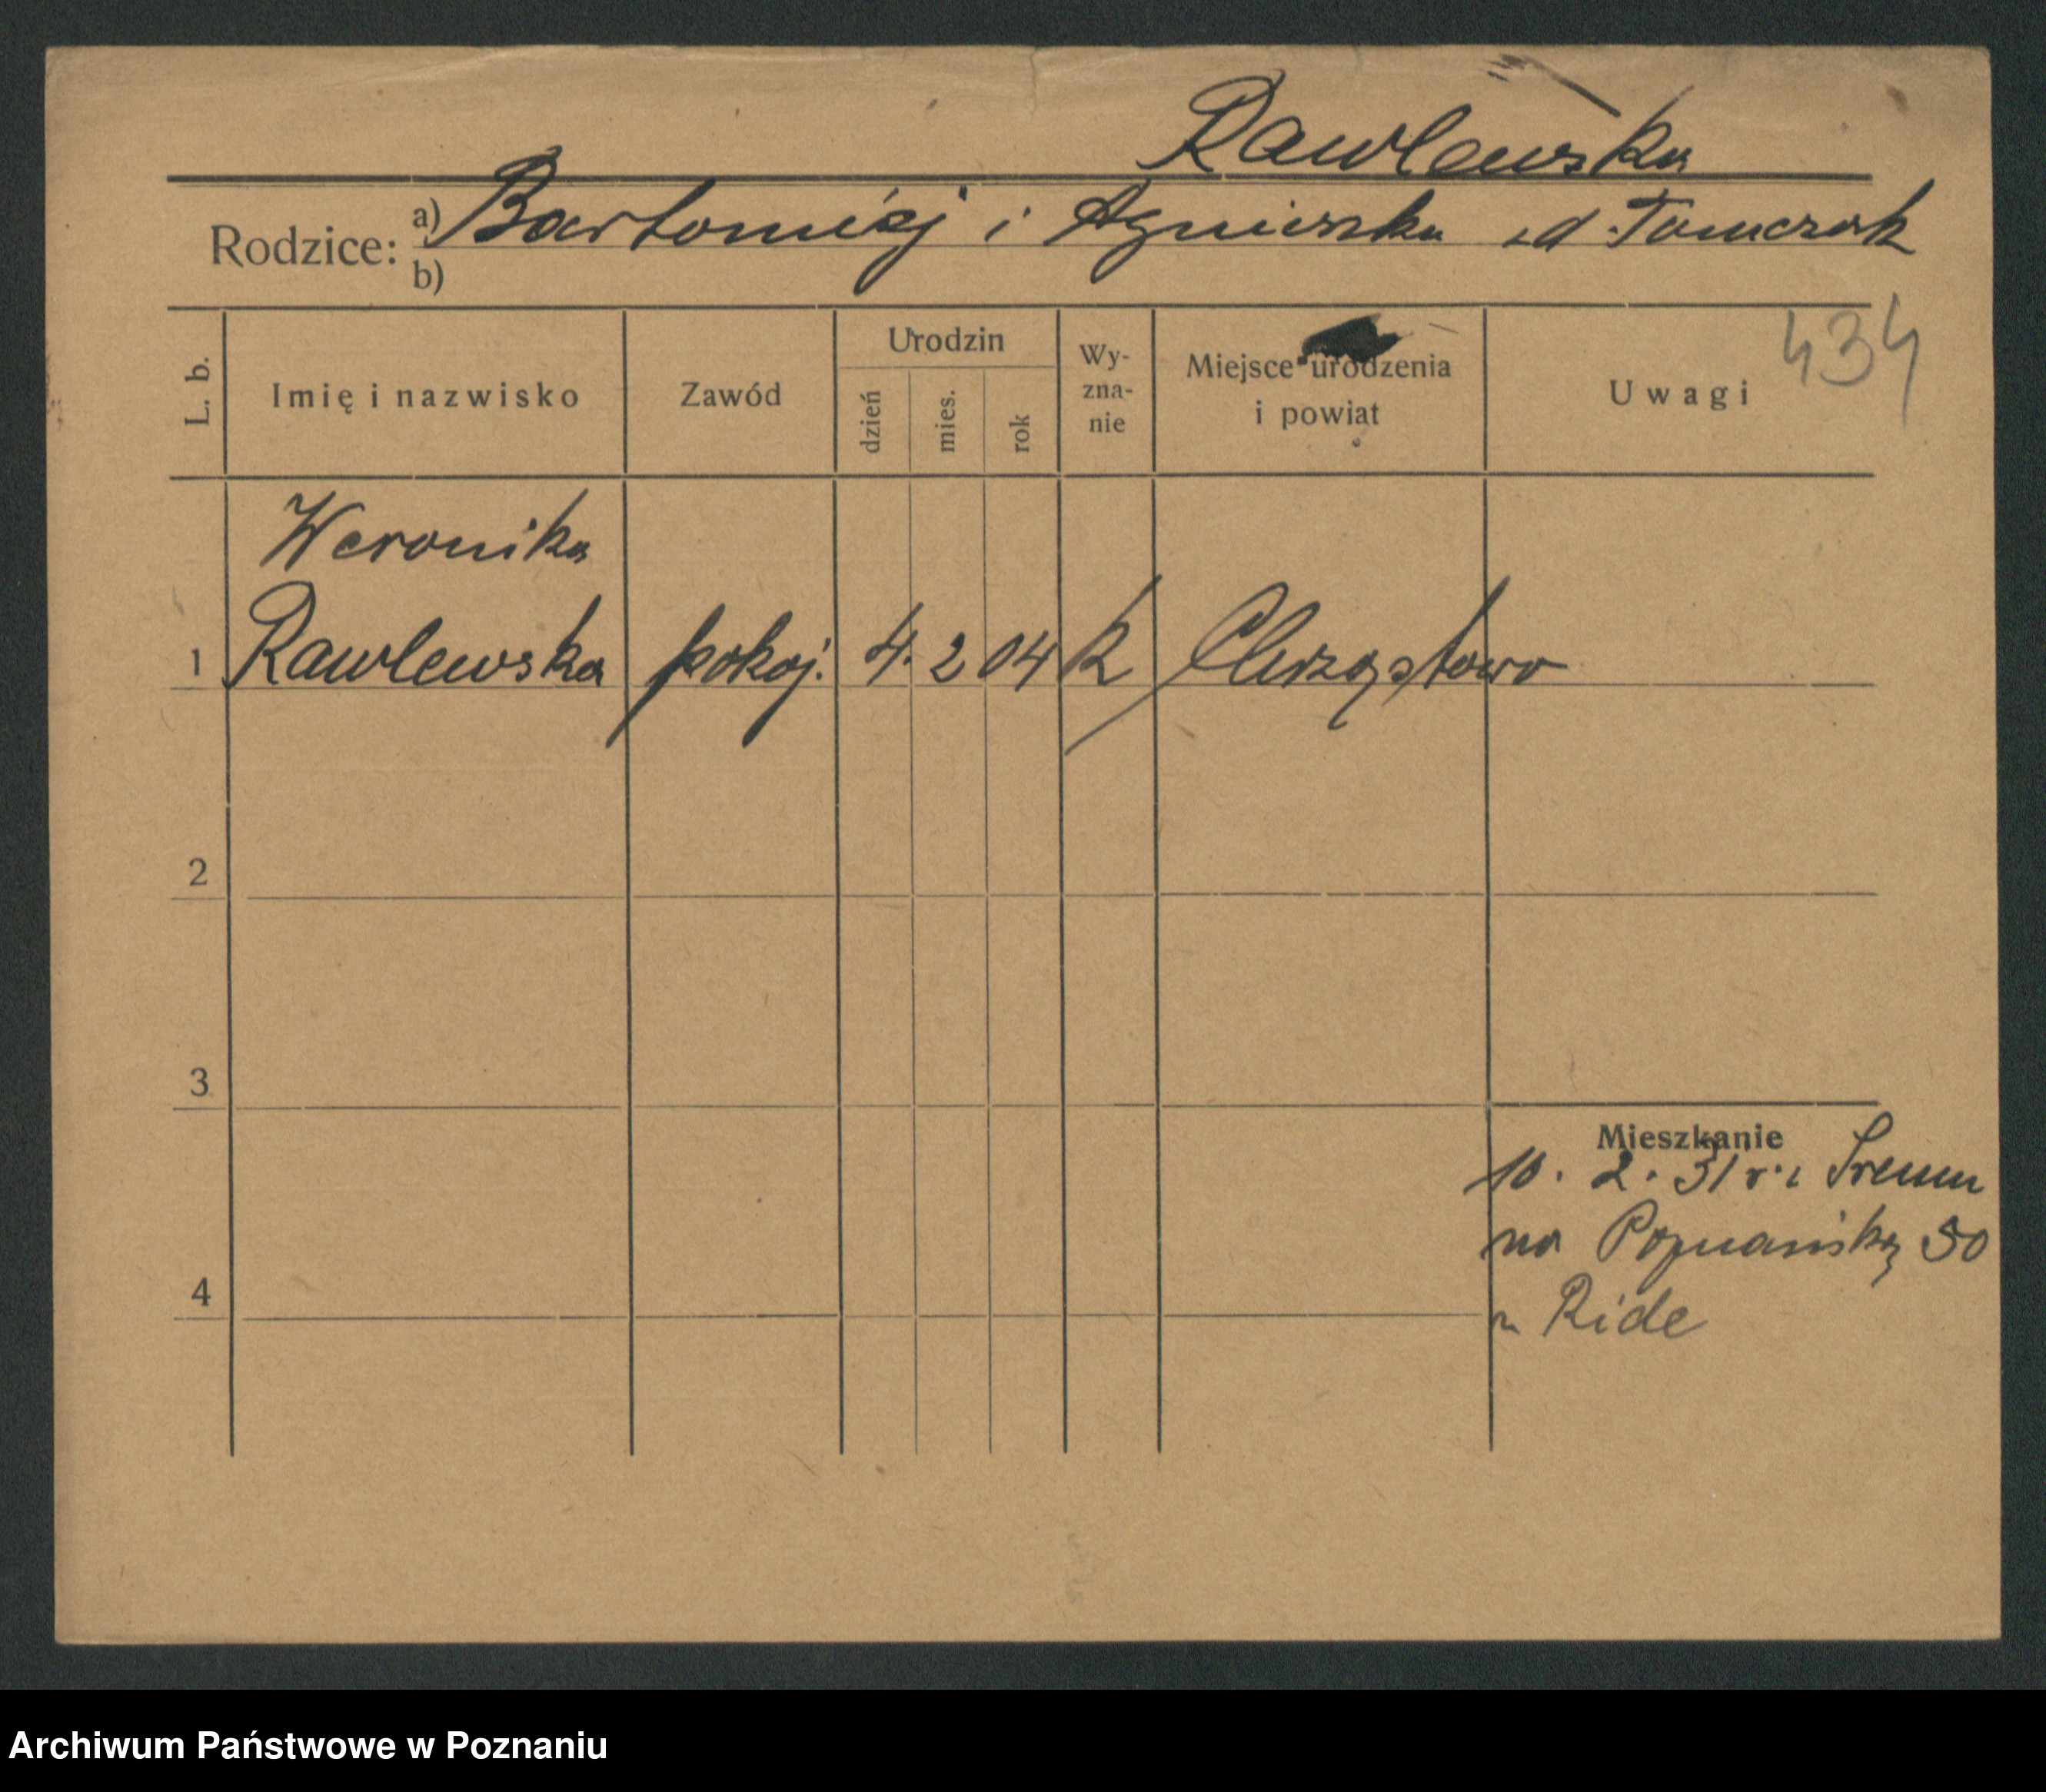 Rawlewska
Rodzice: a) Bartomiej i Agnieszka z d. Tomczak
b)
434
L. b. Imię i nazwisko Zawód Urodzin dzień mies. rok Wy-zna-nie Miejsce urodzenia i powiat Uwagi
Weronika
1 Rawlewska pokoj. 4. 2 04 K Chrząstowo
2
3
Mieszkanie
10. 2. 31 r. z Śremu
na Poznańską 50
4
u Ride
Archiwum Państwowe w Poznaniu